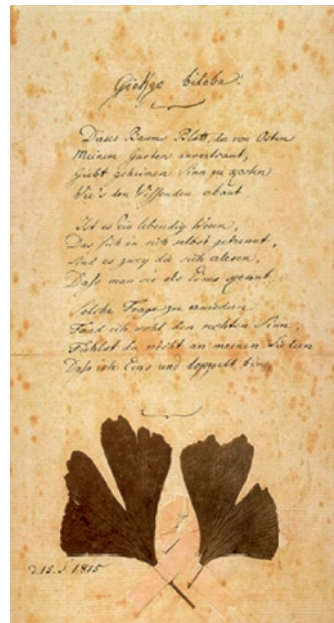 Ginkgo biloba.
Dieses Baums Blatt, der von Osten
Meinem Garten anvertraut,
Giebt geheimen Sinn zu kosten
Wie's den Wissenden erbaut.
Ist es Ein lebendig Wesen,
Das sich in sich selbst getrennt,
Sind es zwey die sich erlesen,
Daß man sie als Eines kennt.
Solche Frage zu erwiedern
Fand ich wohl den rechten Sinn,
Fühlst du nicht an meinen Liedern
Daß ich Eins und doppelt bin.
d. 15. S. 1815